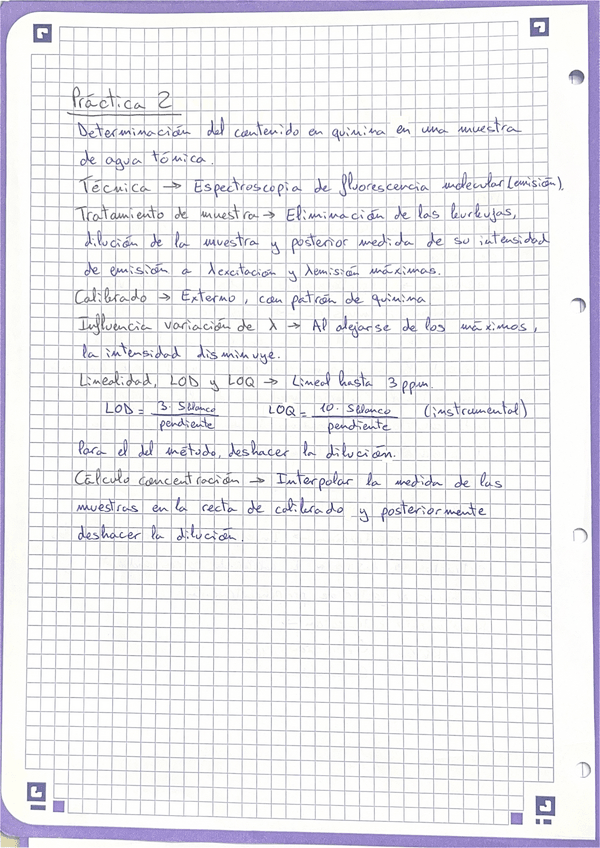 Práctica 2
Determinación del contenido en quinina en una muestra
de agua tónica.
Técnica → Espectroscopia de fluorescencia molecular (emisión).
Tratamiento de muestra → Eliminación de las burbujas,
dilución de la muestra y posterior medida de su intensidad
de emisión a λexcitación y λemisión máximas.
Calibrado → Externo, con patrón de quinina
Influencia variación de λ → Al alejarse de los máximos,
la intensidad disminuye.
Linealidad, LOD y LOQ → Lineal hasta 3 ppm.
LOD = 3 · Sblanco / pendiente LOQ = 10 · Sblanco / pendiente (instrumental)
Para el del método, deshacer la dilución.
Cálculo concentración → Interpolar la medida de las
muestras en la recta de calibrado y posteriormente
deshacer la dilución.